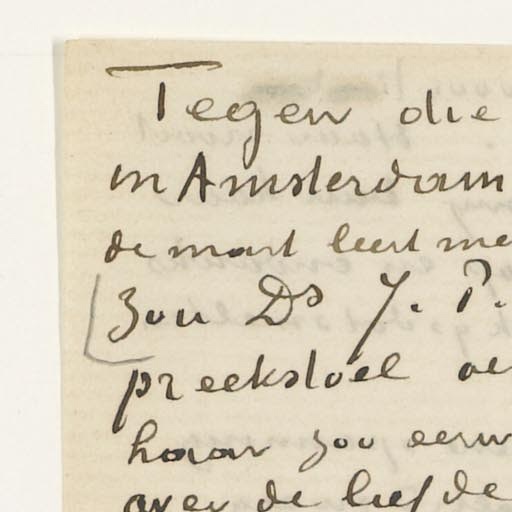 Tegen die
in Amsterdam
de mast leert me
zou Ds J. P.
preekstoel
haar zoo
over de liefde